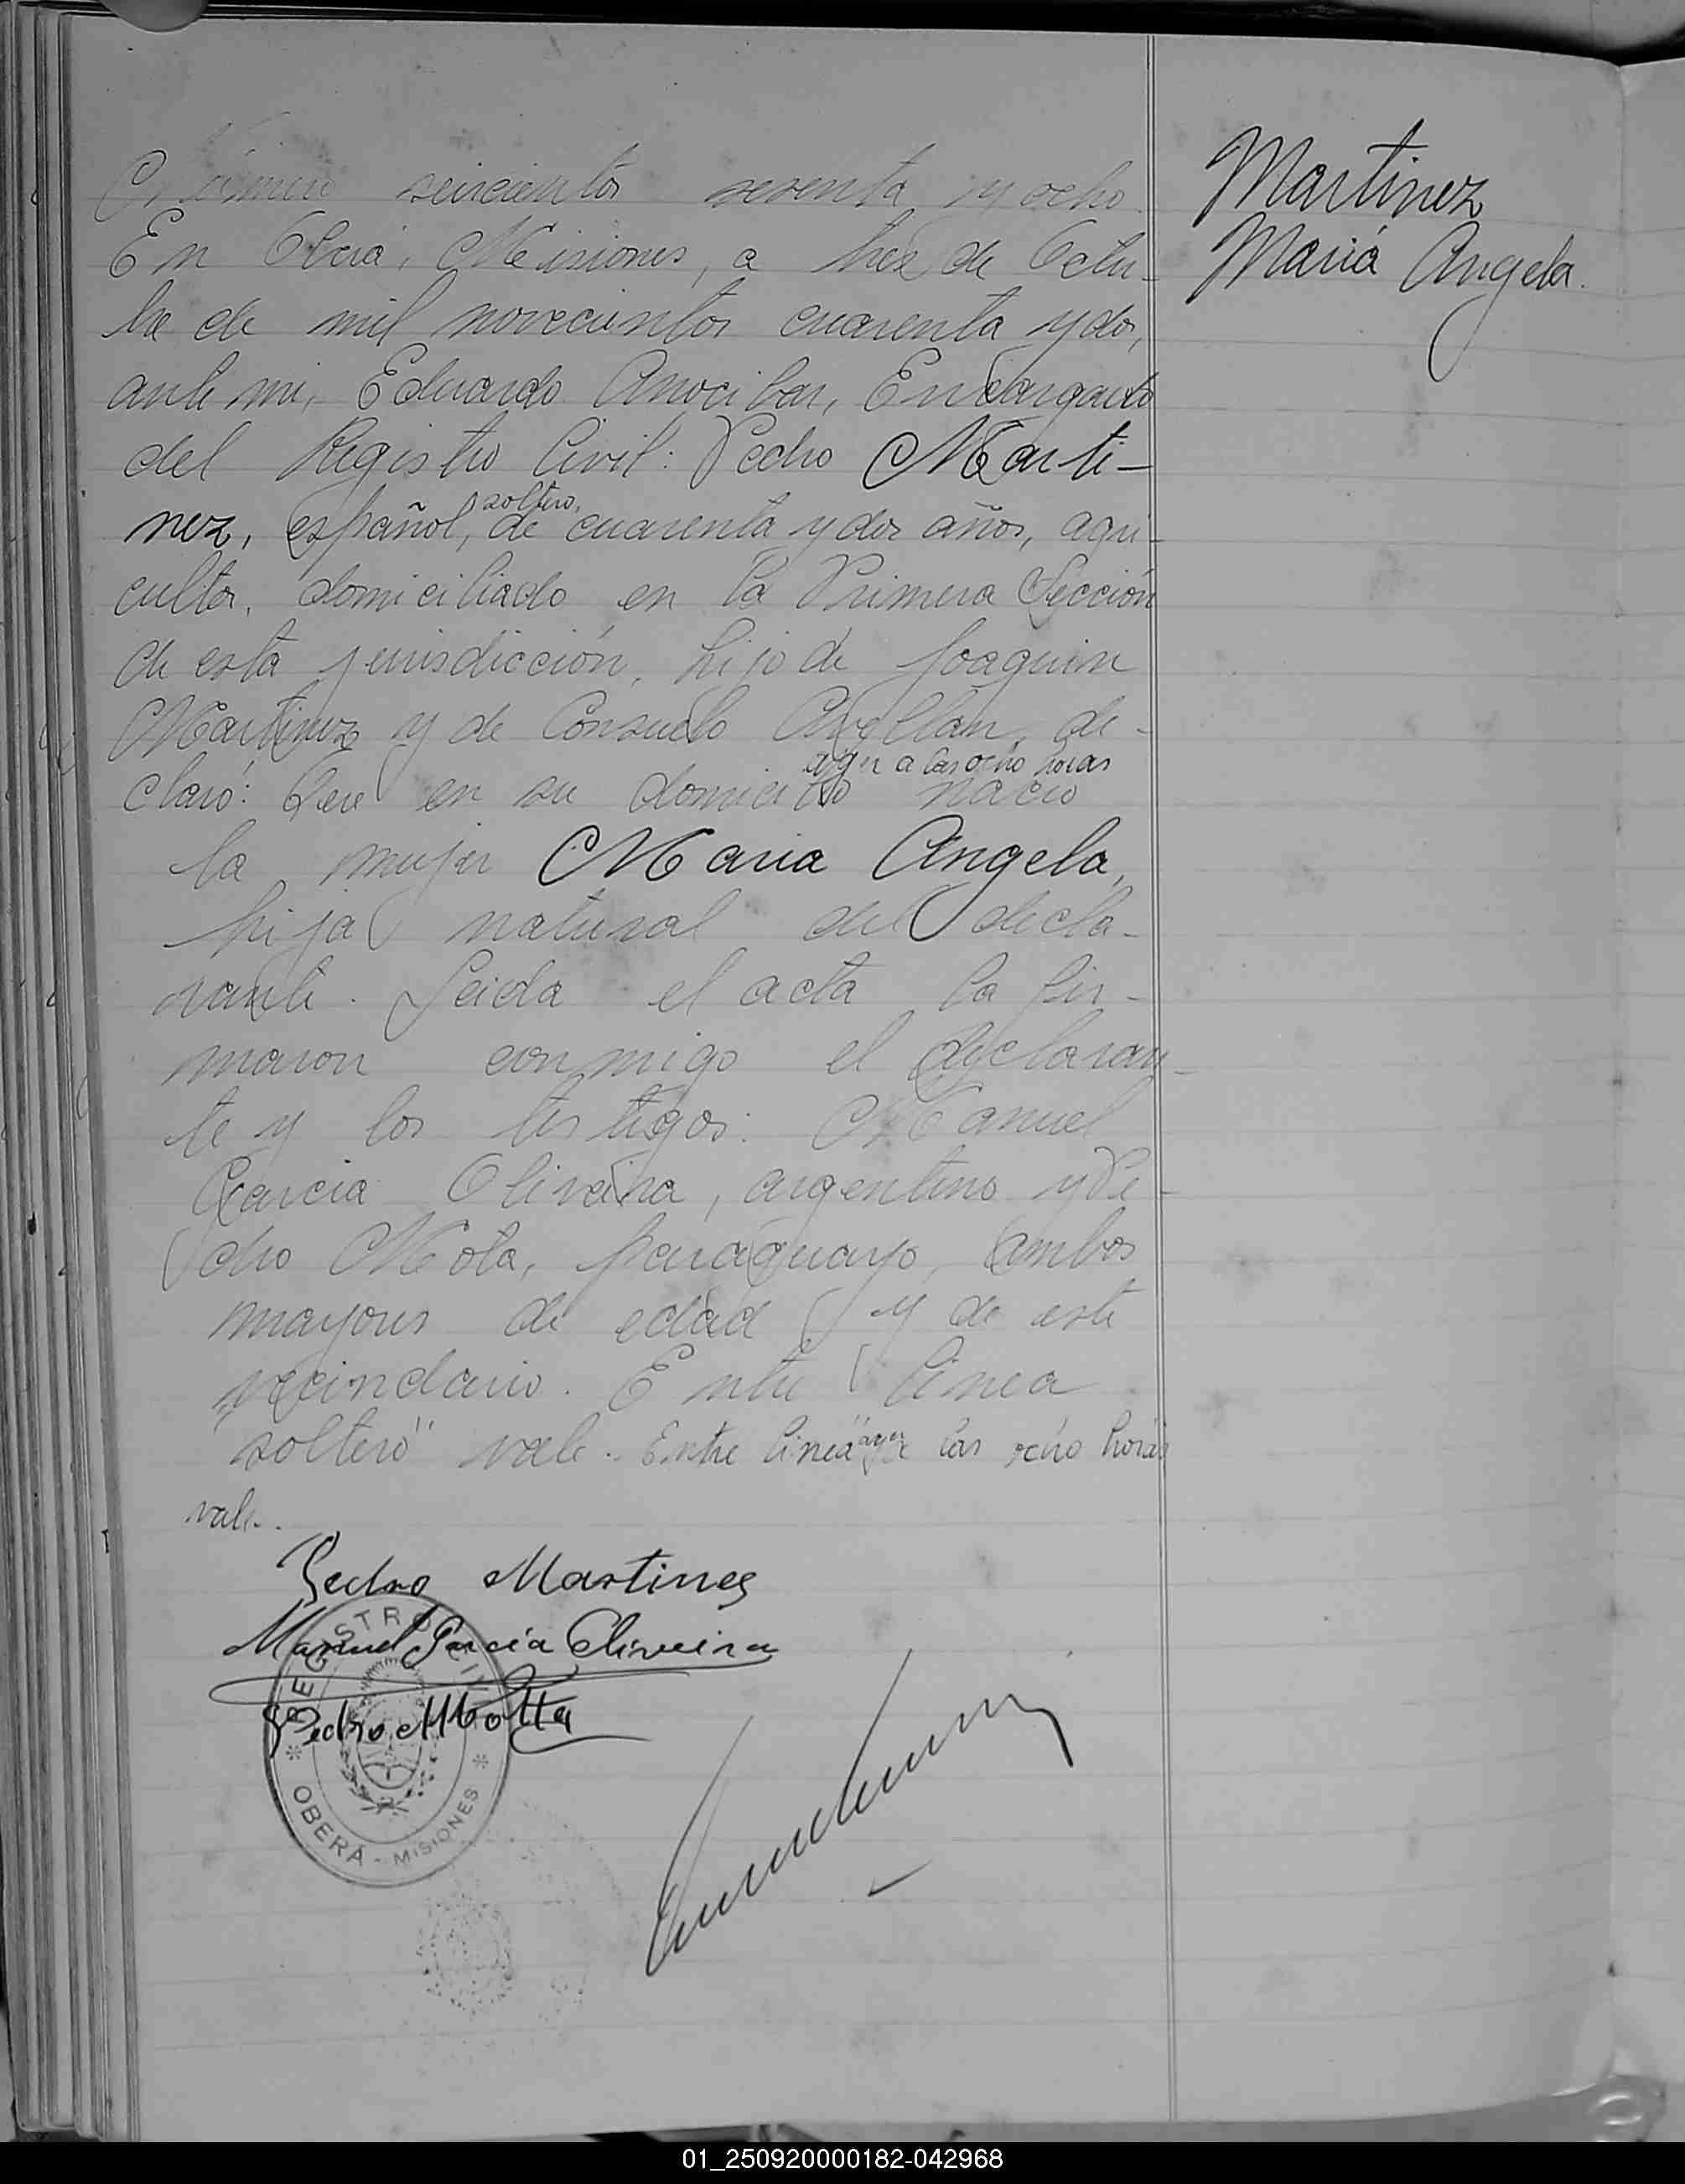 Número seiscientos sesenta y ocho
En Oberá, Misiones, a trez de Octu-
bre de mil novecientos cuarenta y dos,
ante mi, Eduardo Anocibar, Encargado
del Registro Civil: Pedro Marti-
soltero,
nez, español, de cuarenta y dos años, agri-
cultor, domiciliado en la Primera Sección
de esta jurisdicción, hijo de Joaquin
Martinez y de Consuelo Avellan, de-
ayer a las ocho horas
claró: Que en su domicilio nació
la mujer Maria Angela,
hija natural del decla-
rante. Leida el acta la fir-
maron conmigo el declaran-
te y los testigos: Manuel
Garcia Oliveira, argentino y Pe-
dro Mota, paraguayo, ambos
mayores de edad y de este
vecindario. Entre linea
"soltero" vale. Entre linea "ayer a las ocho horas
vale.
Martinez
Maria Angela.
Pedro Martinez
Manuel Garcia Oliveira
Pedro Motta
REGISTRO CIVIL
OBERÁ - MISIONES
01_250920000182-042968